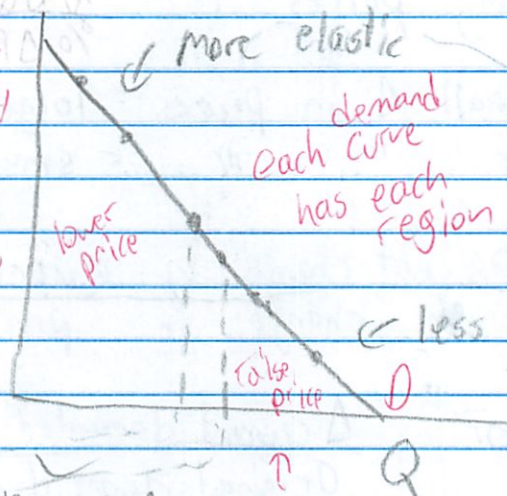 more elastic
demand
each curve
has each
region
lower
price
less
raise
price
D
Q